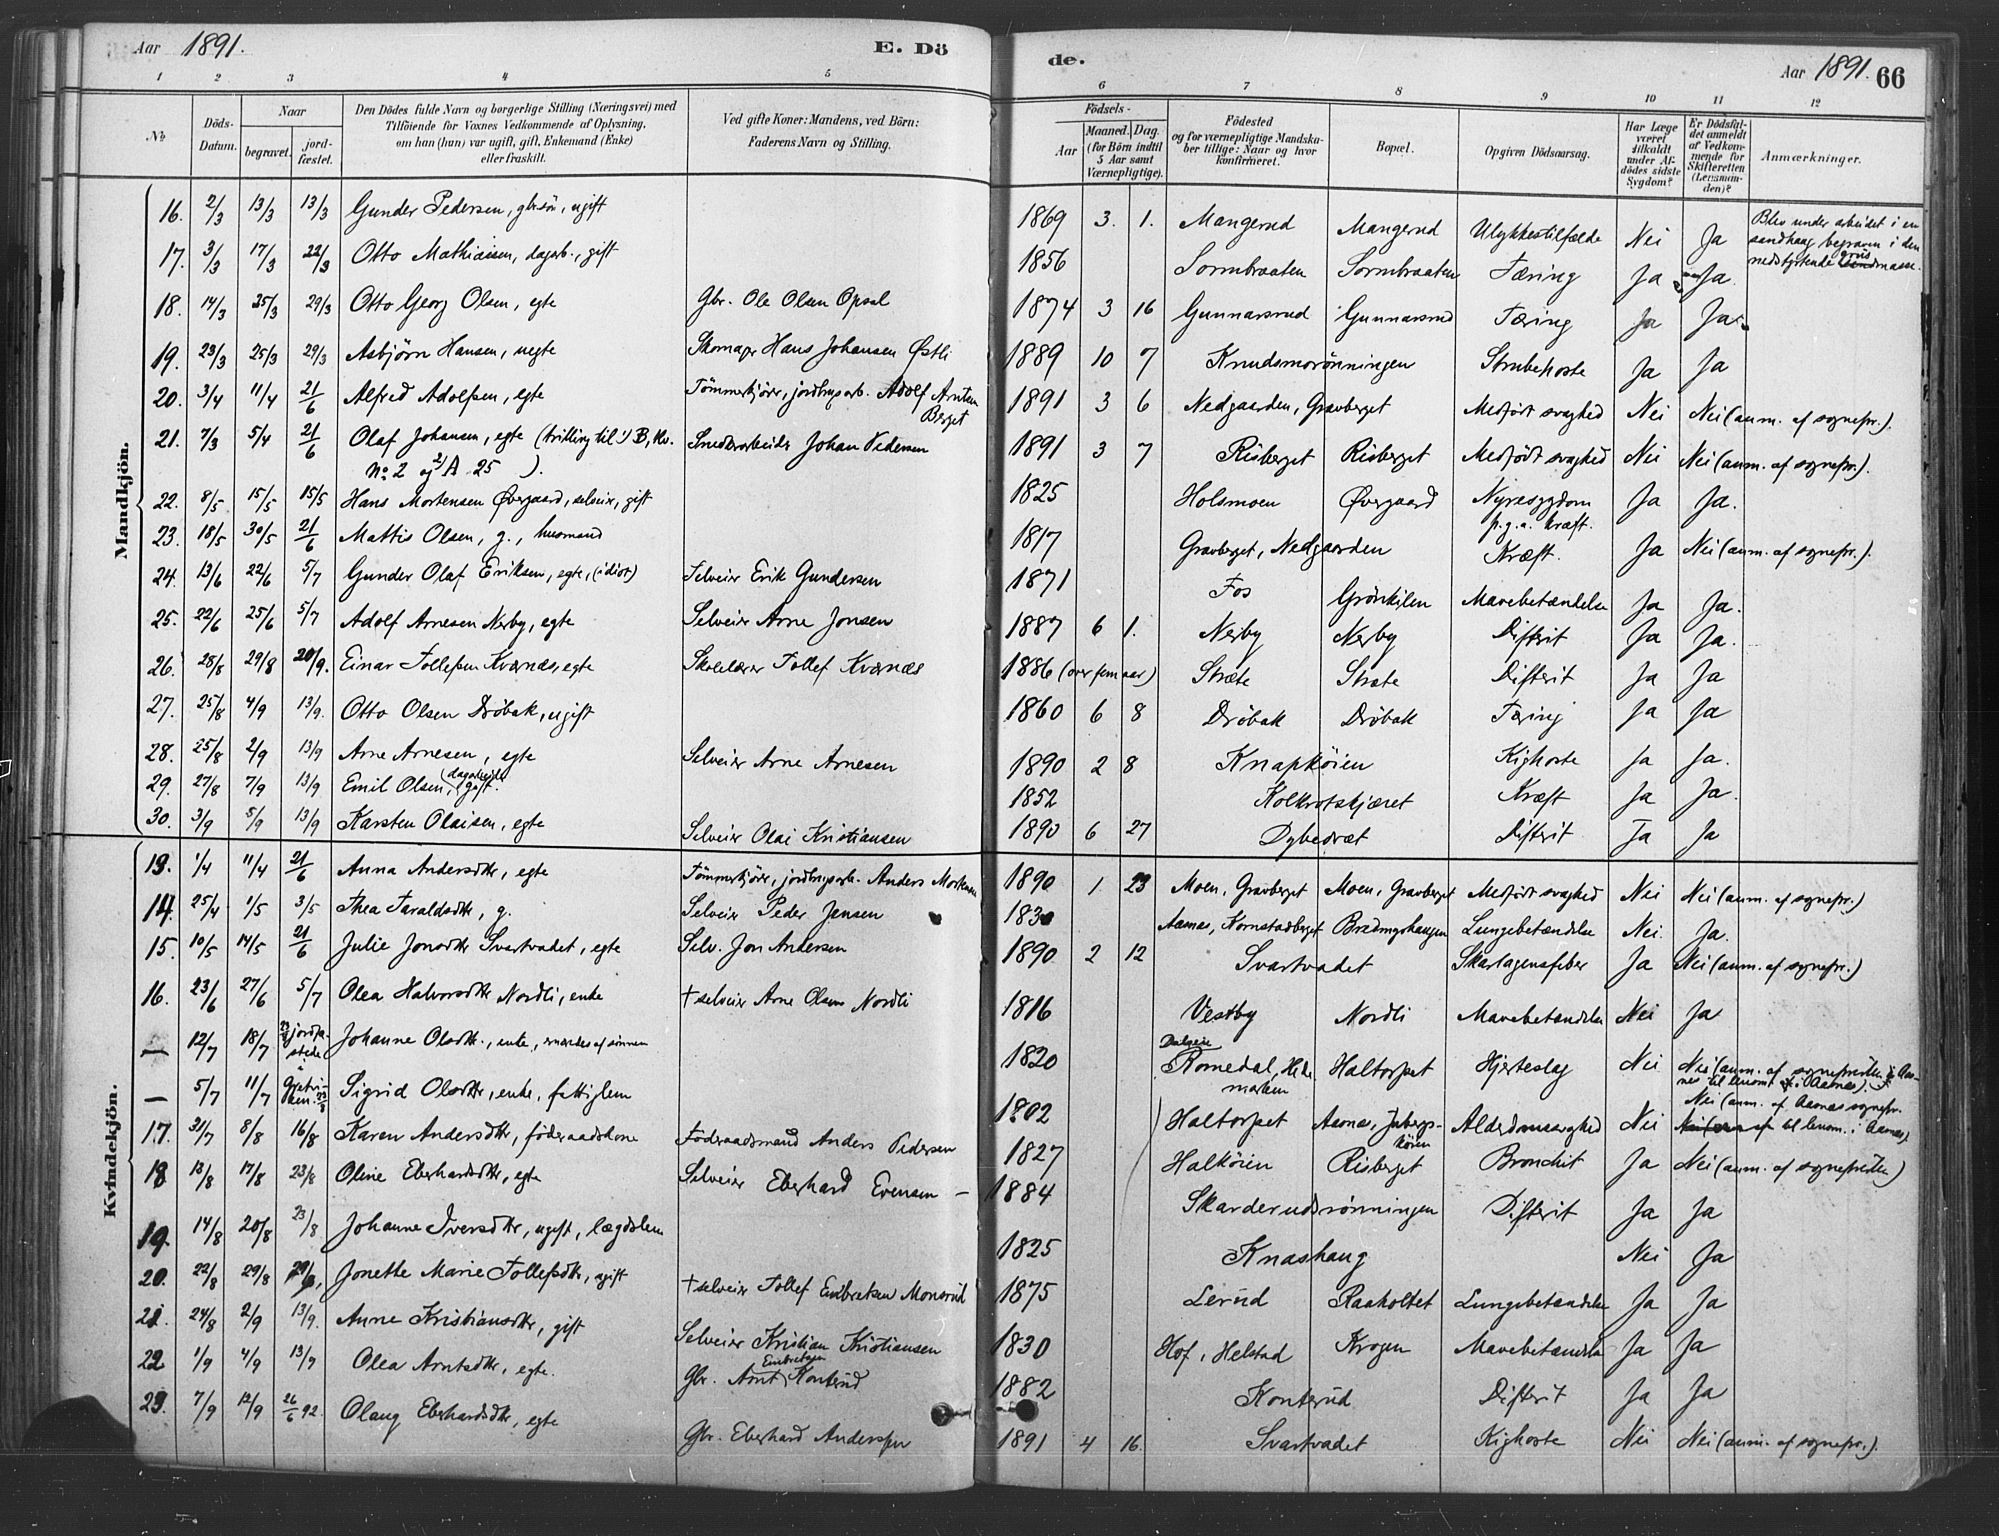 Aar 1891. E. Dö
1 2 3 4 5
No. Döds-Datum. Naar begravet. jordfæstet. Den Dödes fulde Navn og borgerlige Stilling (Næringsvei) med Tilföiende for Voxnes Vedkommende af Oplysning, om han (hun) var ugift, gift, Enkemand (Enke) eller fraskilt. Ved gifte Koner: Mandens, ved Börn: Faderens Navn og Stilling.
Mandkjön.
16. 2/3 13/3 13/3 Gunder Pedersen, gbr.sön, ugift
17. 3/3 17/3 22/3 Otto Mathiassen, dagarb., gift
18. 14/3 25/3 29/3 Otto Georg Olsen, egte Gbr. Ole Olsen Opsal
19. 23/3 25/3 29/3 Asbjörn Hansen, uegte Skomager Hans Johansen Østli
20. 3/4 11/4 21/6 Alfred Adolfsen, egte Tömmerkjörer, jordbrugsarb. Adolf Arntsen Berget
21. 7/3 5/4 21/6 Olaf Johansen, egte (trilling til 1) B, Kv. Smedarbeider Johan Pedersen
No 2 og 2) A 25 ).
22. 8/5 15/5 15/5 Hans Mortensen Øvergaard, selveier, gift
23. 18/5 30/5 21/6 Mattis Olsen, g., husmand
24. 13/6 22/6 5/7 Gunder Olaf Eriksen, egte, (idiot) Selveier Erik Gundersen
25. 22/6 25/6 5/7 Adolf Arnesen Nerby, egte Selveier Arne Jonsen
26. 28/8 29/8 20/9. Einar Tollefsen Kvernæs, egte Skolelærer Tollef Kvernæs
27. 25/8 4/9 13/9. Otto Olsen Dröbak, ugift
28. 25/8 2/9 13/9 Arne Arnesen, egte Selveier Arne Arnesen
29. 27/8 7/9 13/9 Emil Olsen, (dagarbeider) gift.
30. 3/9 5/9 13/9 Karsten Olaisen, egte Selveier Olai Kristiansen
Kvindekjön.
13. 1/4 11/4 21/6 Anna Andersdtr, egte Tömmerkjörer, jordbrugsarb. Anders Mortensen
14. 25/4 1/5 3/5 Thea Taraldsdtr, g. Selveier Peder Jensen
15. 10/5 14/5 21/6 Julie Jonsdtr Svartvadet, egte Selv. Jon Andersen
16. 23/6 27/6 5/7 Olea Halvorsdtr Nordli, enke † selveier Arne Olsen Nordli
— 12/7 18/7 Johanne Olsdtr., enke, ernæredes af sönnen
— 5/7 11/7 Sigrid Olsdtr, enke, fattiglem
17. 31/7 8/8 16/8 Karen Andersdtr, föderaadskone Föderaadsmand Anders Pedersen
18 13/8 17/8 23/8 Oline Eberhardsdtr, egte Selveier Eberhard Evensen —
19. 14/8 20/8 23/8 Johanne Iversdtr, ugift, lægdslem
20. 22/8 29/8 Jonette Marie Tollefsdtr, ugift † selveier Tollef Embretsen Monsrud
21. 24/8 2/9 13/9. Anne Kristiansdtr, gift Selveier Kristian Kristiansen
22 1/9 4/9 13/9 Olea Arntsdtr, egte. Gbr. Arnt Embretsen Konterud
23. 7/9 12/9 26/6 92. Olaug Eberhardsdtr, egte Gbr. Eberhard Anderssen
de. Aar 1891. 66
6 7 8 9 10 11 12
Födsels- Aar Maaned. Dag. (for Börn indtil 5 Aar samt Værnepligtige). Födested og for værnepligtige Mandskaber tillige: Naar og hvor konfirmeret. Bopæl. Opgiven Dödsaarsag. Har Læge været tilkaldt under Afdödes sidste Sygdom? Er Dödsfaldet anmeldt af Vedkommende for Skifteretten (Lensmanden)? Anmærkninger.
1869 3. 1. Mangerud Mangerud Ulykkestilfælde Nei Ja Blev under arbeidet i en sandhaug begraven i den nedstyrtende grus sandmasse.
1856 Sormbraaten Sormbraaten Tæring Ja Ja.
1874 3 16 Gunnarsrud Gunnarsrud Tæring Ja Ja.
1889 10 7 Knudsmorönningen Strubehoste Ja Ja
1891 3 6 Nedgaarden, Gravberget Medfödt svaghed Nei Nei (anm. af sognepr.).
1891 3 7 Risberget Risberget Medfödt svaghed Nei Nei (anm. af sognepr.).
1825 Holsmoen Øvergaard Nyresygdom p.g.a. kræft. Ja Ja.
1817 Gravberget, Nedgaarden Kræft. Ja Nei (anm. af sognepr.).
1871 Fos Grönkilen Mavebetændelse Ja Ja.
1887 6 1. Nerby Nerby Difterit Ja Ja.
1886 (over fem aar) Stræte Stræte Difterit Ja Ja
1860 6 8 Dröbak Dröbak Tæring Ja Ja
1890 2 8 Knapköien Kighoste Ja Ja.
1852 Kolkrotskjæret Kræft Ja Ja.
1890 6 27 Dybedræt Difterit Ja Ja
1890 1 23 Moen, Gravberget Moen, Gravberget Medfödt svaghed Nei Nei (anm. af sognepr.)
1830 Aasnæs, Kornstadberget Lungebetændelse Nei. Ja.
1890 2 12 Svartvadet Skarlagensfeber Ja Nei (anm. af sognepr.)
1816 Vestby Nordli Mavebetændelse Nei Ja
1820 Romedal, Hedemarken Haltorpet Hjerteslag Nei Nei (anm. af sognepresten i Aasnes til lensm. i Aasnæs).
1802 Haltorpet Aasnæs, Alderdomssvaghed Nei Nei (anm. af Aasnæs sognepr. til lensm. i Aasnæs)
1827 Halköien Risberget Bronchit Ja Nei (anm. af sognepresten)
1884 Skarderudsrönningen Difterit Ja Ja
1825 Knashaug Nei Ja
1875 Lerud Raaholtet Lungebetændelse Ja Ja
1830 Hof, Helstad Krogen Mavebetændelse Ja Ja
1882 Konterud Difterit Ja Ja
1891 4 16. Svartvadet Kighoste Nei Nei (anm. af sognepr.).